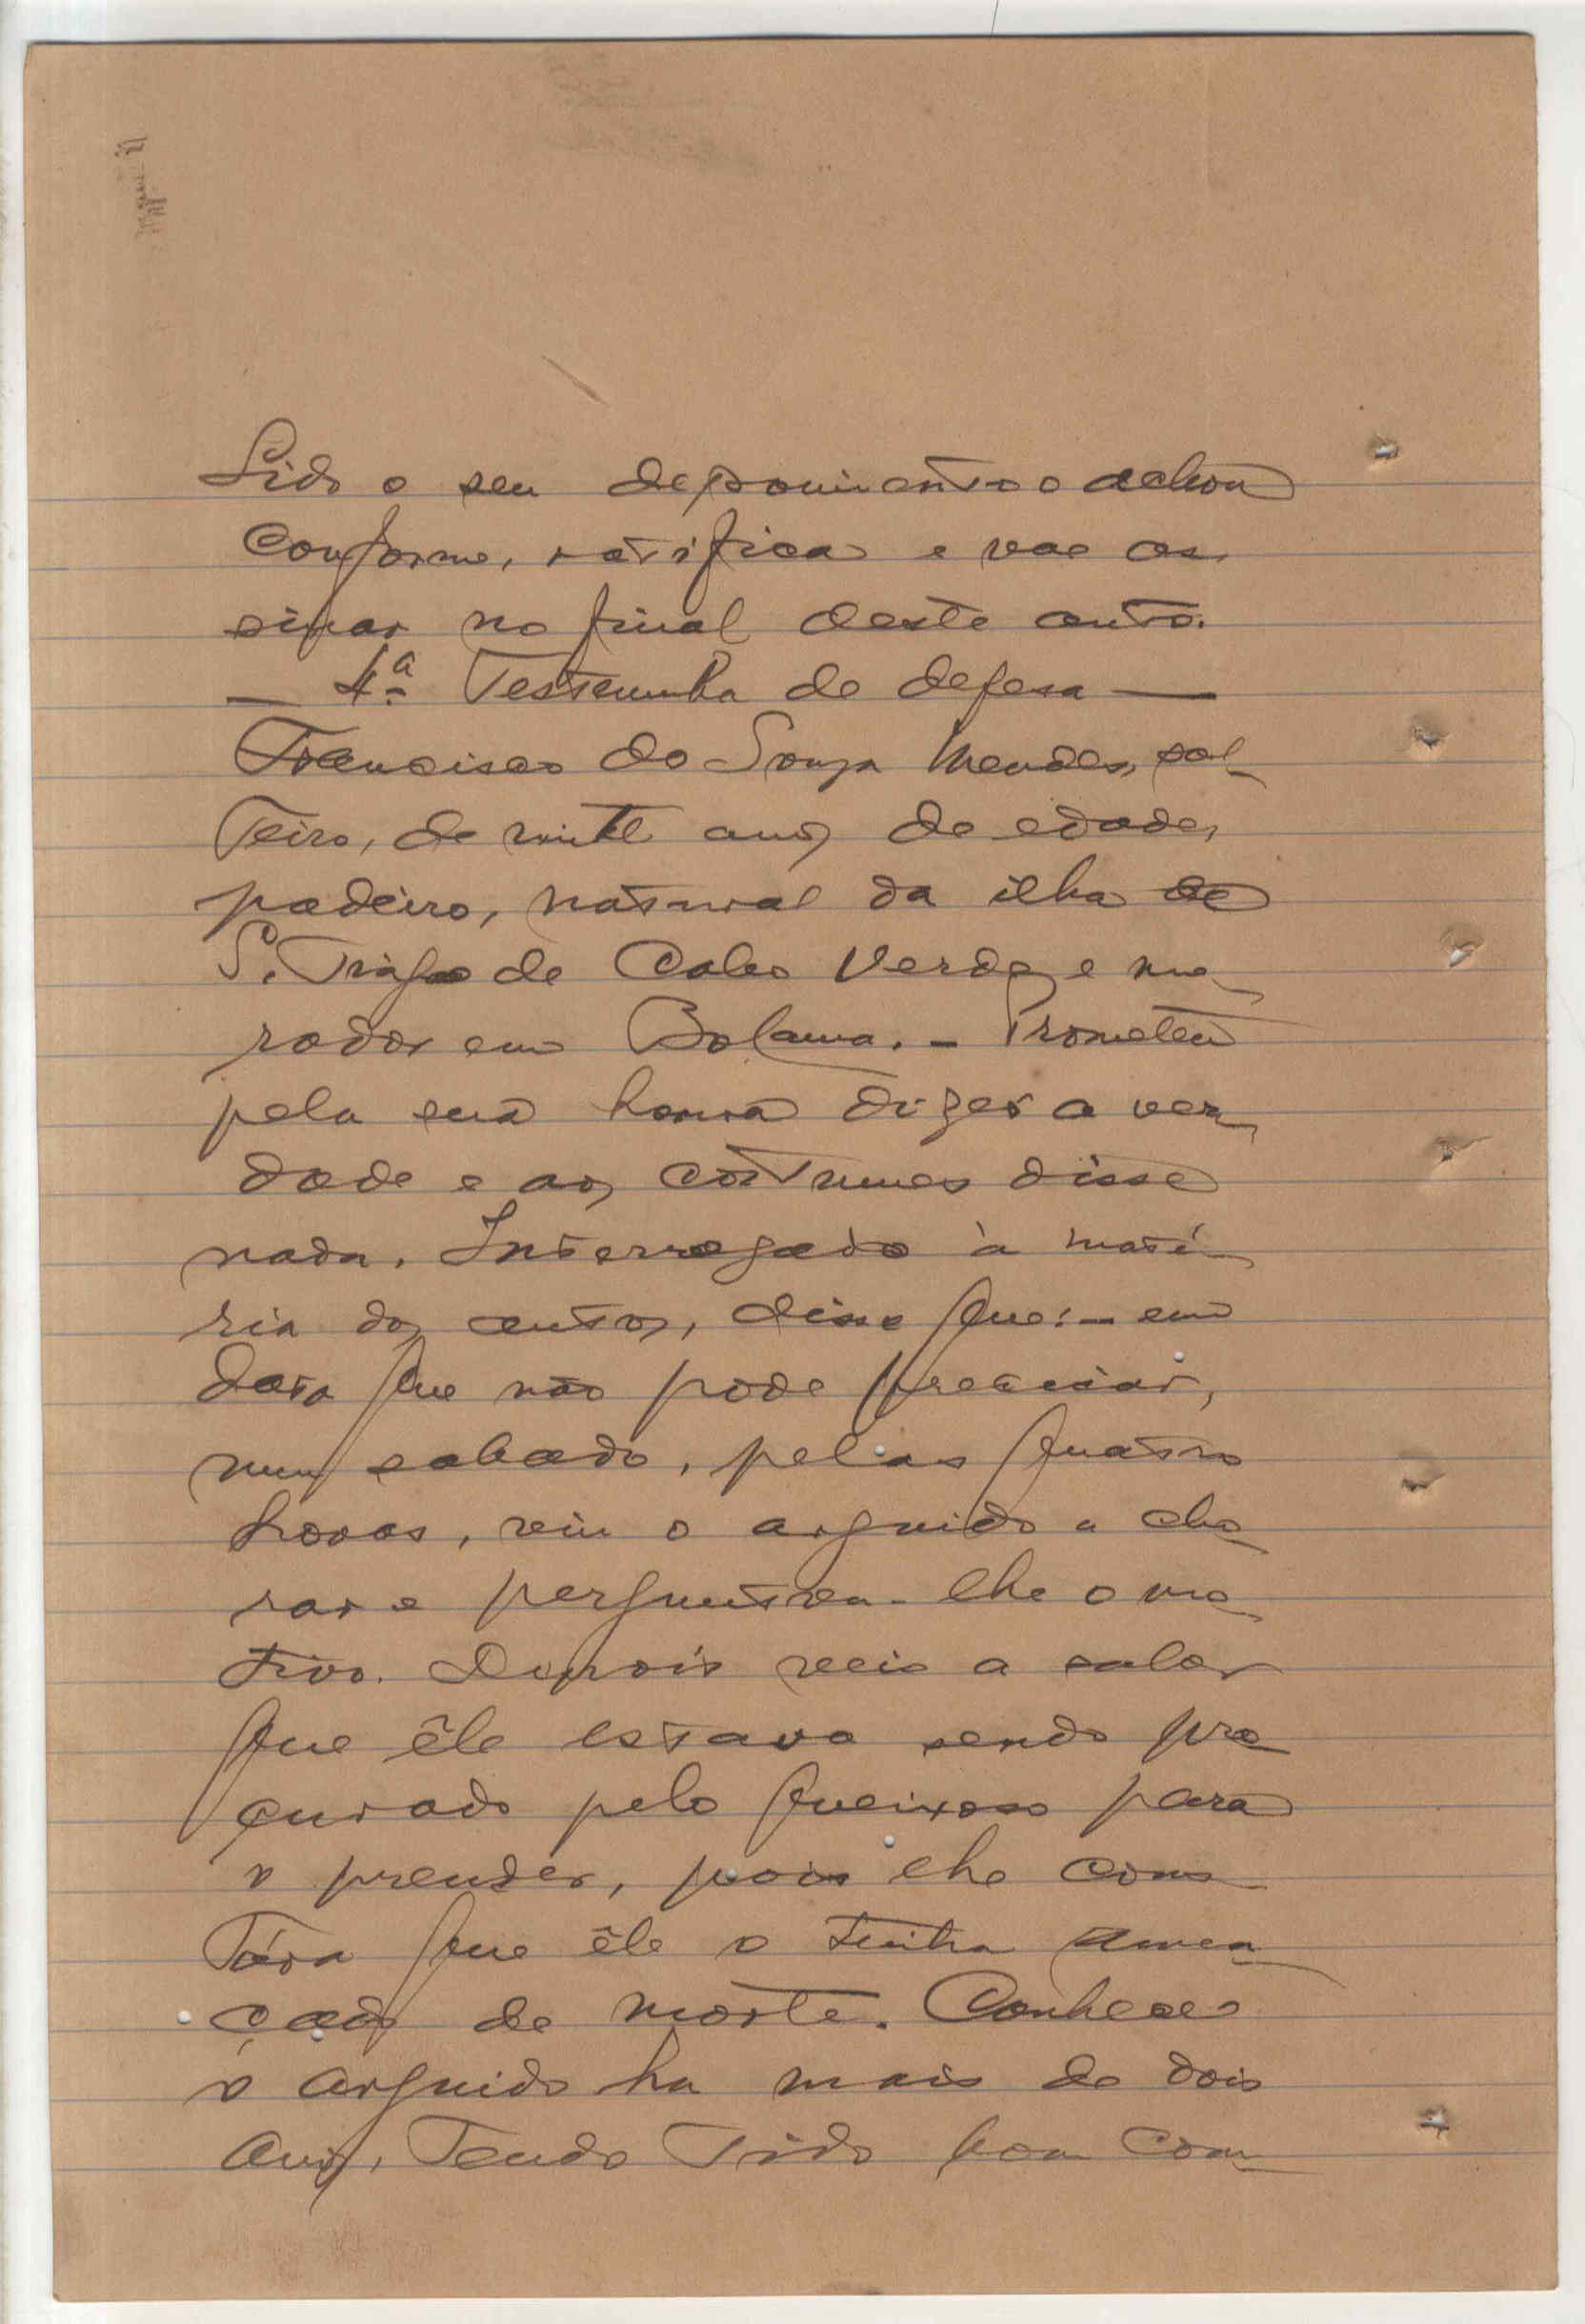 Lido o seu depoimento o achou
conforme, ratifica e vae as-
sinar no final deste auto.
— 4ª Testemunha de defesa —
Francisco de Souza Mendes, sol-
teiro, de vinte anos de edade,
padeiro, natural da ilha de
S. Tiago de Cabo Verde, e mo-
rador em Bolama. - Prometeu
pela sua honra dizer a ver-
dade e aos costumes disse
nada. Interrogado à maté-
ria dos autos, disse que: - em
data que não pode precisar,
num sabado, pelas quatro
horas, viu o arguido a cho-
rar e perguntou-lhe o mo-
tivo. Depois veio a saber
que êle estava sendo pro-
curado pelo queixoso para
o prender, pois lhe cons-
tára que êle o tinha amea-
çado de morte. Conhece
o arguido ha mais de dois
anos, tendo tido bom com-